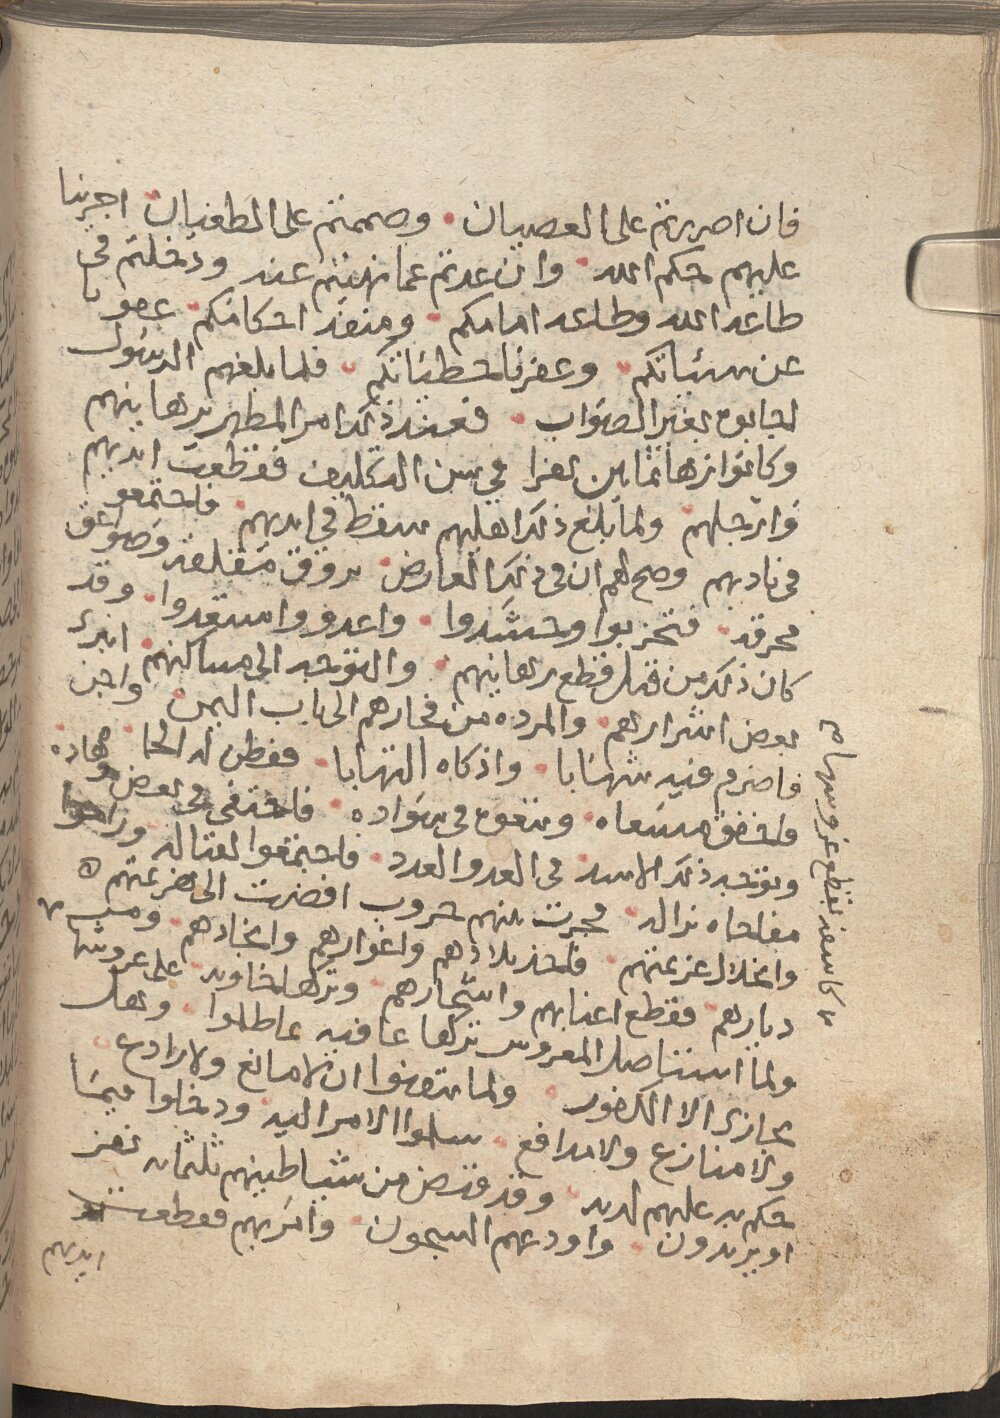 فان اصررتم على العصيان وصممتم على الطغيان اجرينا
عليهم حكم الله وان عدتم عما نهيتم عنه ودخلتم في
طاعة الله وطاعه امامكم ومنفذ احكامكم عفونا
عن سيئاتكم وغفرنا خطيئاتكم فلما بلغهم الرسول
اجابوه بغير الصواب فعند ذلك امر المطهر برهاينهم
وكانوا زها ثمانين نفرا في سن التكليف فقطعت ايديهم
وارجلهم ولما بلغ ذلك اهليهم سقط في ايديهم فاجتمعو
في ناديهم وصح لهم ان في ذلك العارض بروق مقلقة وصواعق
محرقه فتحزبوا وحشدوا واعدوا واستعدوا وقد
كان ذلك من قبل قطع رهاينهم والتوجه الى مساكنهم انبرى
بعض اشرارهم والمرده من فجارهم الى باب اليمن واجن
فاضرم فيه شهابا واذكاه التهابا ففطن له
فاخفق مسعاه في سواده فاختفى في بعض وهاده
وتوجه ذلك الاسد في العدو العدد فاجتمعوا لقتاله وراموا
نزاله فجرت بينهم حروب افضت الى هزيمتهم
وانحلال عزيمتهم فاخذ بلادهم واغوارهم وانجادهم
ديارهم فقطع اعنابهم واشجارهم وتركها خاويه على عروشها
ولما استاصل المغروس تركها عافيه عاطلوا وهل
يجازى الا الكفور ولما تيقنوا ان لا مانع ولا رادع
ولا منازع ولا مدافع سلموا الامر اليه ودخلوا فيما
حكم به عليهم لديه وقد قبض من شياطينهم ثلثمايه نفر
او يزيدون واودعهم السجون وامر بهم فقطعت
ايديهم